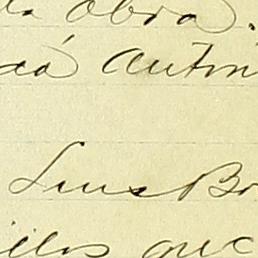 la obra.
dá Anton
Luis Bo
ellos que